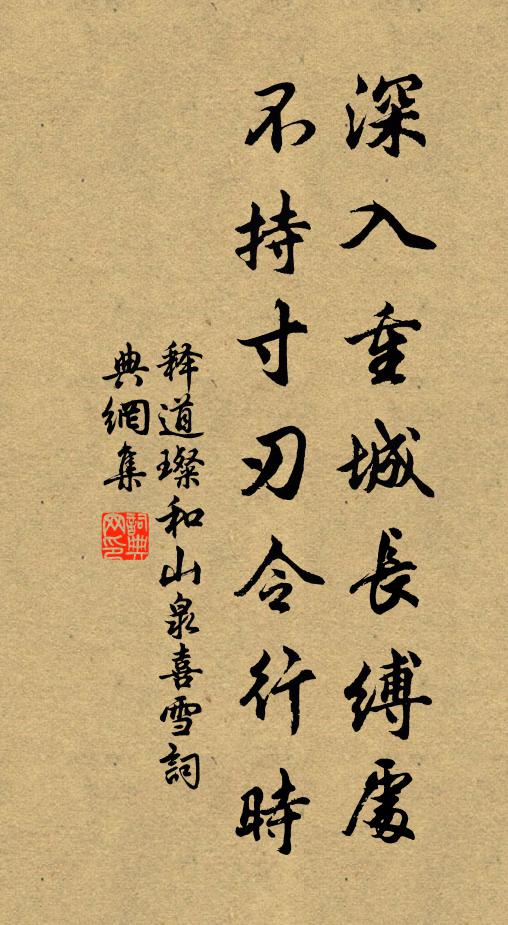 深入重城長縛處
不持寸刃令行時
釋道璨和山泉喜雪詞
典網集
詞典網印